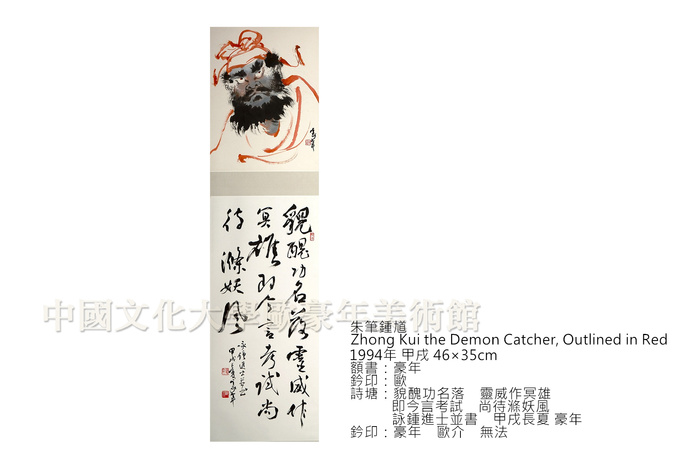 豪年
貌醜功名落靈威作
冥雄即今言考試尚
待滌妖風
詠鍾進士並書
甲戌長夏豪年
中國文化大學歐豪年美術館
朱筆鍾馗
Zhong Kui the Demon Catcher, Outlined in Red
1994年 甲戌 46×35cm
額書：豪年
鈐印：歐
詩塘：貌醜功名落　靈威作冥雄
即今言考試　尚待滌妖風
詠鍾進士並書　甲戌長夏 豪年
鈐印：豪年　歐介　無法